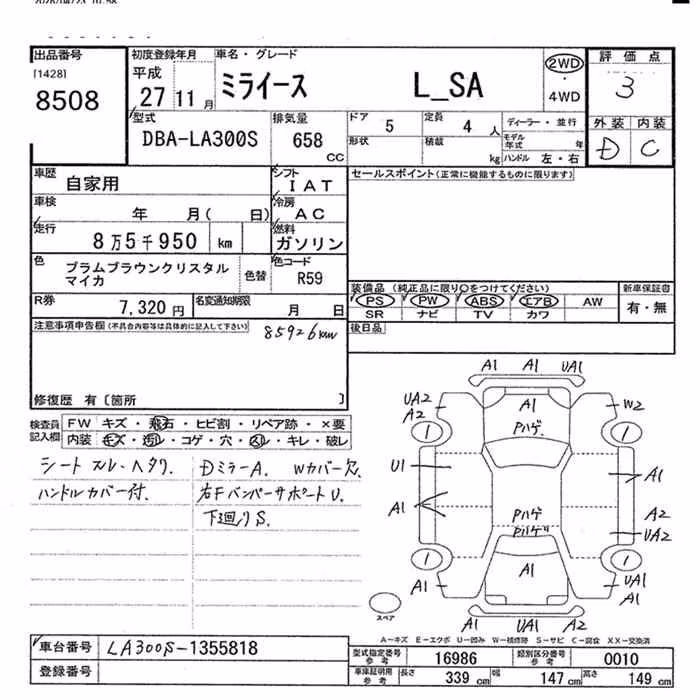 出品番号
[1428]
8508
初度登録年月
平成
27 11 月
車名・グレード
ミライース L_SA
2WD
・
4WD
評価点
3
外装 内装
D C
型式
DBA-LA300S
排気量
658
CC
ドア
5
定員
4 人
形状
積載
kg
ディーラー・並行
モデル年式 年
ハンドル 左・右
車歴
自家用
シフト
IAT
セールスポイント(正常に機能するものに限ります)
車検
年 月( 日)
冷房
AC
走行
8万5千950 km
燃料
ガソリン
色
プラムブラウンクリスタル
マイカ
色替
色コード
R59
装備品 (純正品に限り○をつけてください)
PS PW ABS エアB AW
SR ナビ TV カワ
新車保証書
有・無
R券
7,320 円
名変通知期限
月 日
後日品
注意事項申告欄(不具合内容等は具体的に記入して下さい)
85926km
修復歴 有〔箇所 〕
検査員
記入欄
FW キズ・飛石・ヒビ割・リペア跡・×要
内装 キズ・汚レ・コゲ・穴・スレ・キレ・破レ
シートスレ・ヘタリ. DミラーA. Wカバー欠.
ハンドルカバー付. 右FバンパーサポートU.
下廻りS.
A1 A1 UA1
UA2
A2
A1
Pハゲ
W2
1
1
U1
A1
A1
Pハゲ
Pハゲ
A2
UA2
1
1
A1
A1
UA1
A1
A1 UA1 A2
スペア
A-キズ E-エクボ U-凹み W-補修跡 S-サビ C-腐食 XX-交換済
車台番号
LA300S-1355818
登録番号
型式指定番号
参考
16986
類別区分番号
参考
0010
車庫証明用
参考
長さ
339 cm
幅
147 cm
高さ
149 cm